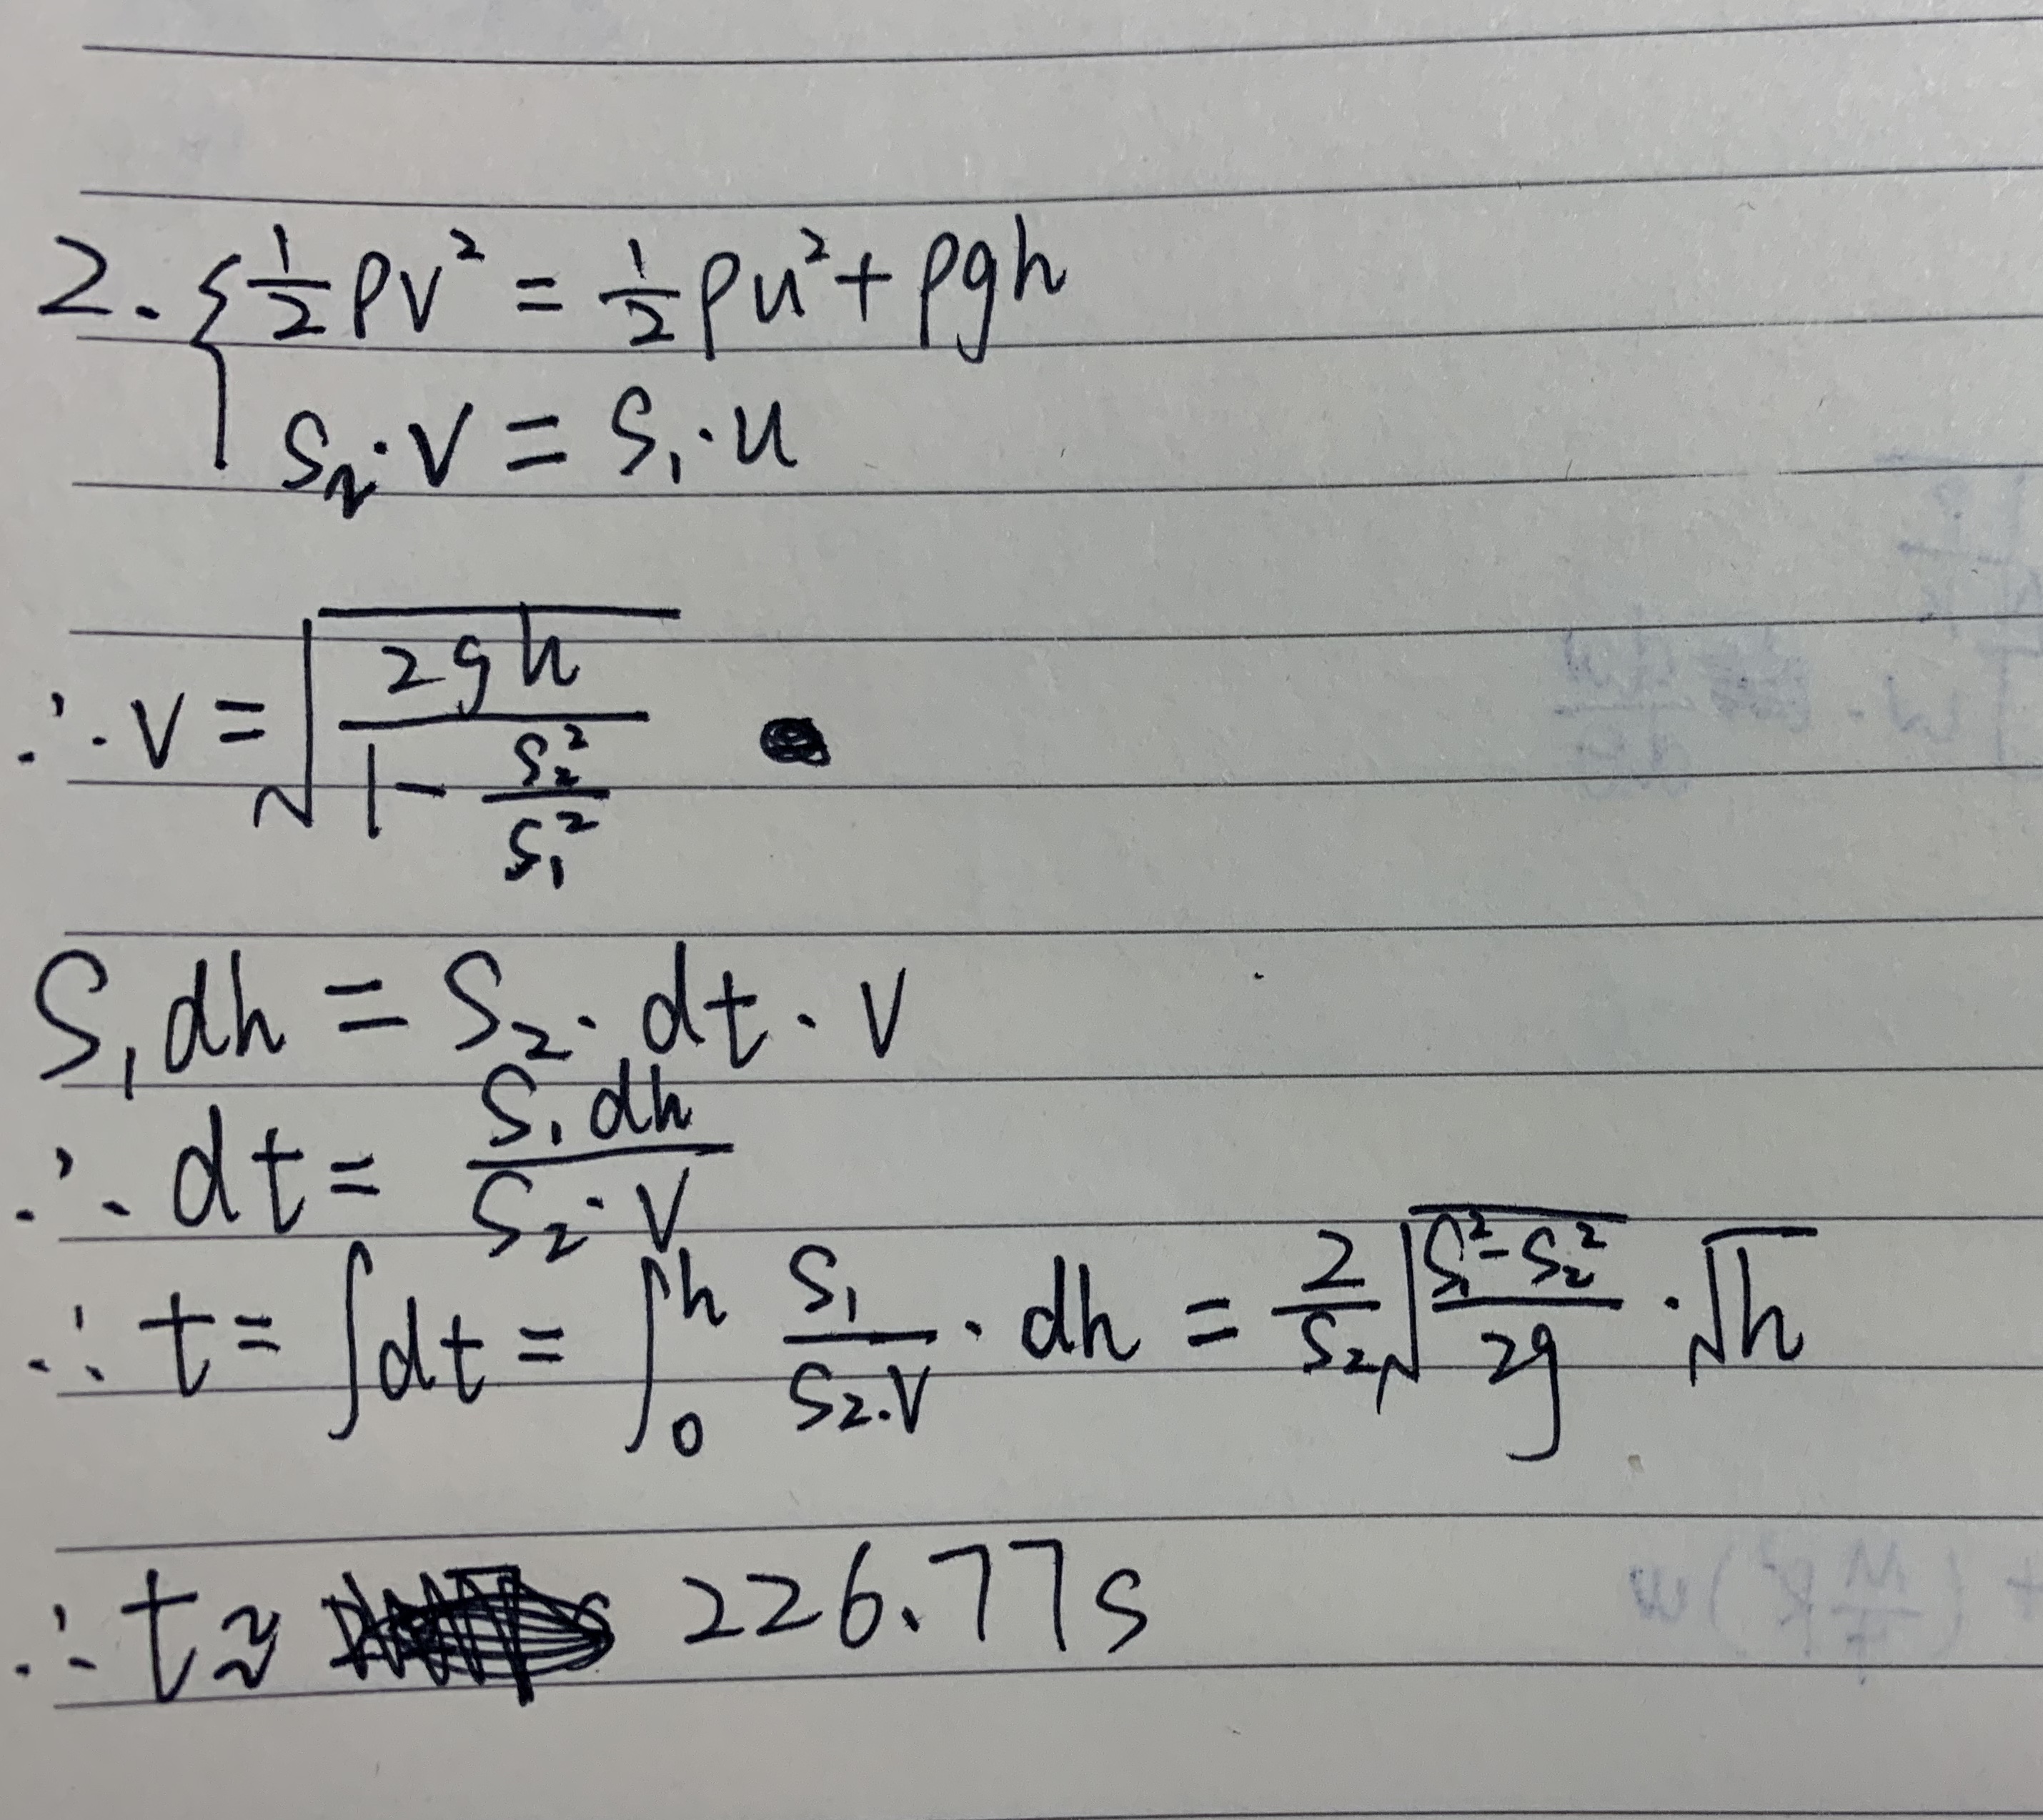 2. { ½ρv² = ½ρu² + ρgh
S₂·v = S₁·u
∴ v = √(2gh / (1 - S₂²/S₁²))
S₁dh = S₂·dt·v
∴ dt = S₁dh / (S₂·v)
∴ t = ∫dt = ∫₀ʰ S₁/(S₂·v) · dh = 2/S₂ √((S₁² - S₂²)/2g) · √h
∴ t ≈ 226.77s